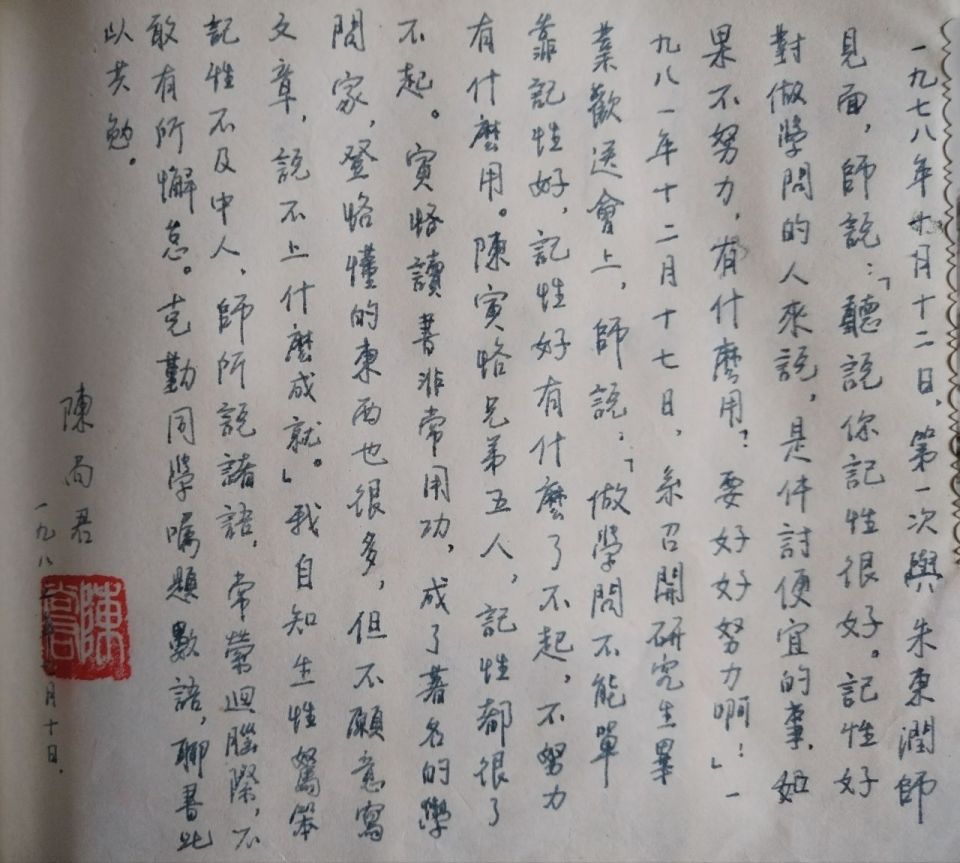 一九七八年九月十二日，第一次與朱東潤師
見面，師說：「聽說你記性很好。記性好
對做學問的人來說，是件討便宜的事，如
果不努力，有什麽用？要好好努力啊！」一
九八一年十二月十七日，系召開研究生畢
業歡送會上，師說：「做學問不能單
靠記性好，記性好有什麽了不起，不努力
有什麽用。陳寅恪兄弟五人，記性都很了
不起。寅恪讀書非常用功，成了著名的學
問家，登恪懂的東西也很多，但不願意寫
文章，說不上什麽成就。」我自知生性駑笨
記性不及中人，師所說諸語，常縈迴腦際，不
敢有所懈怠。克勤同學囑題數語，聊書此
以共勉。
陳尚君
一九八二年 月十日.
陳尚君